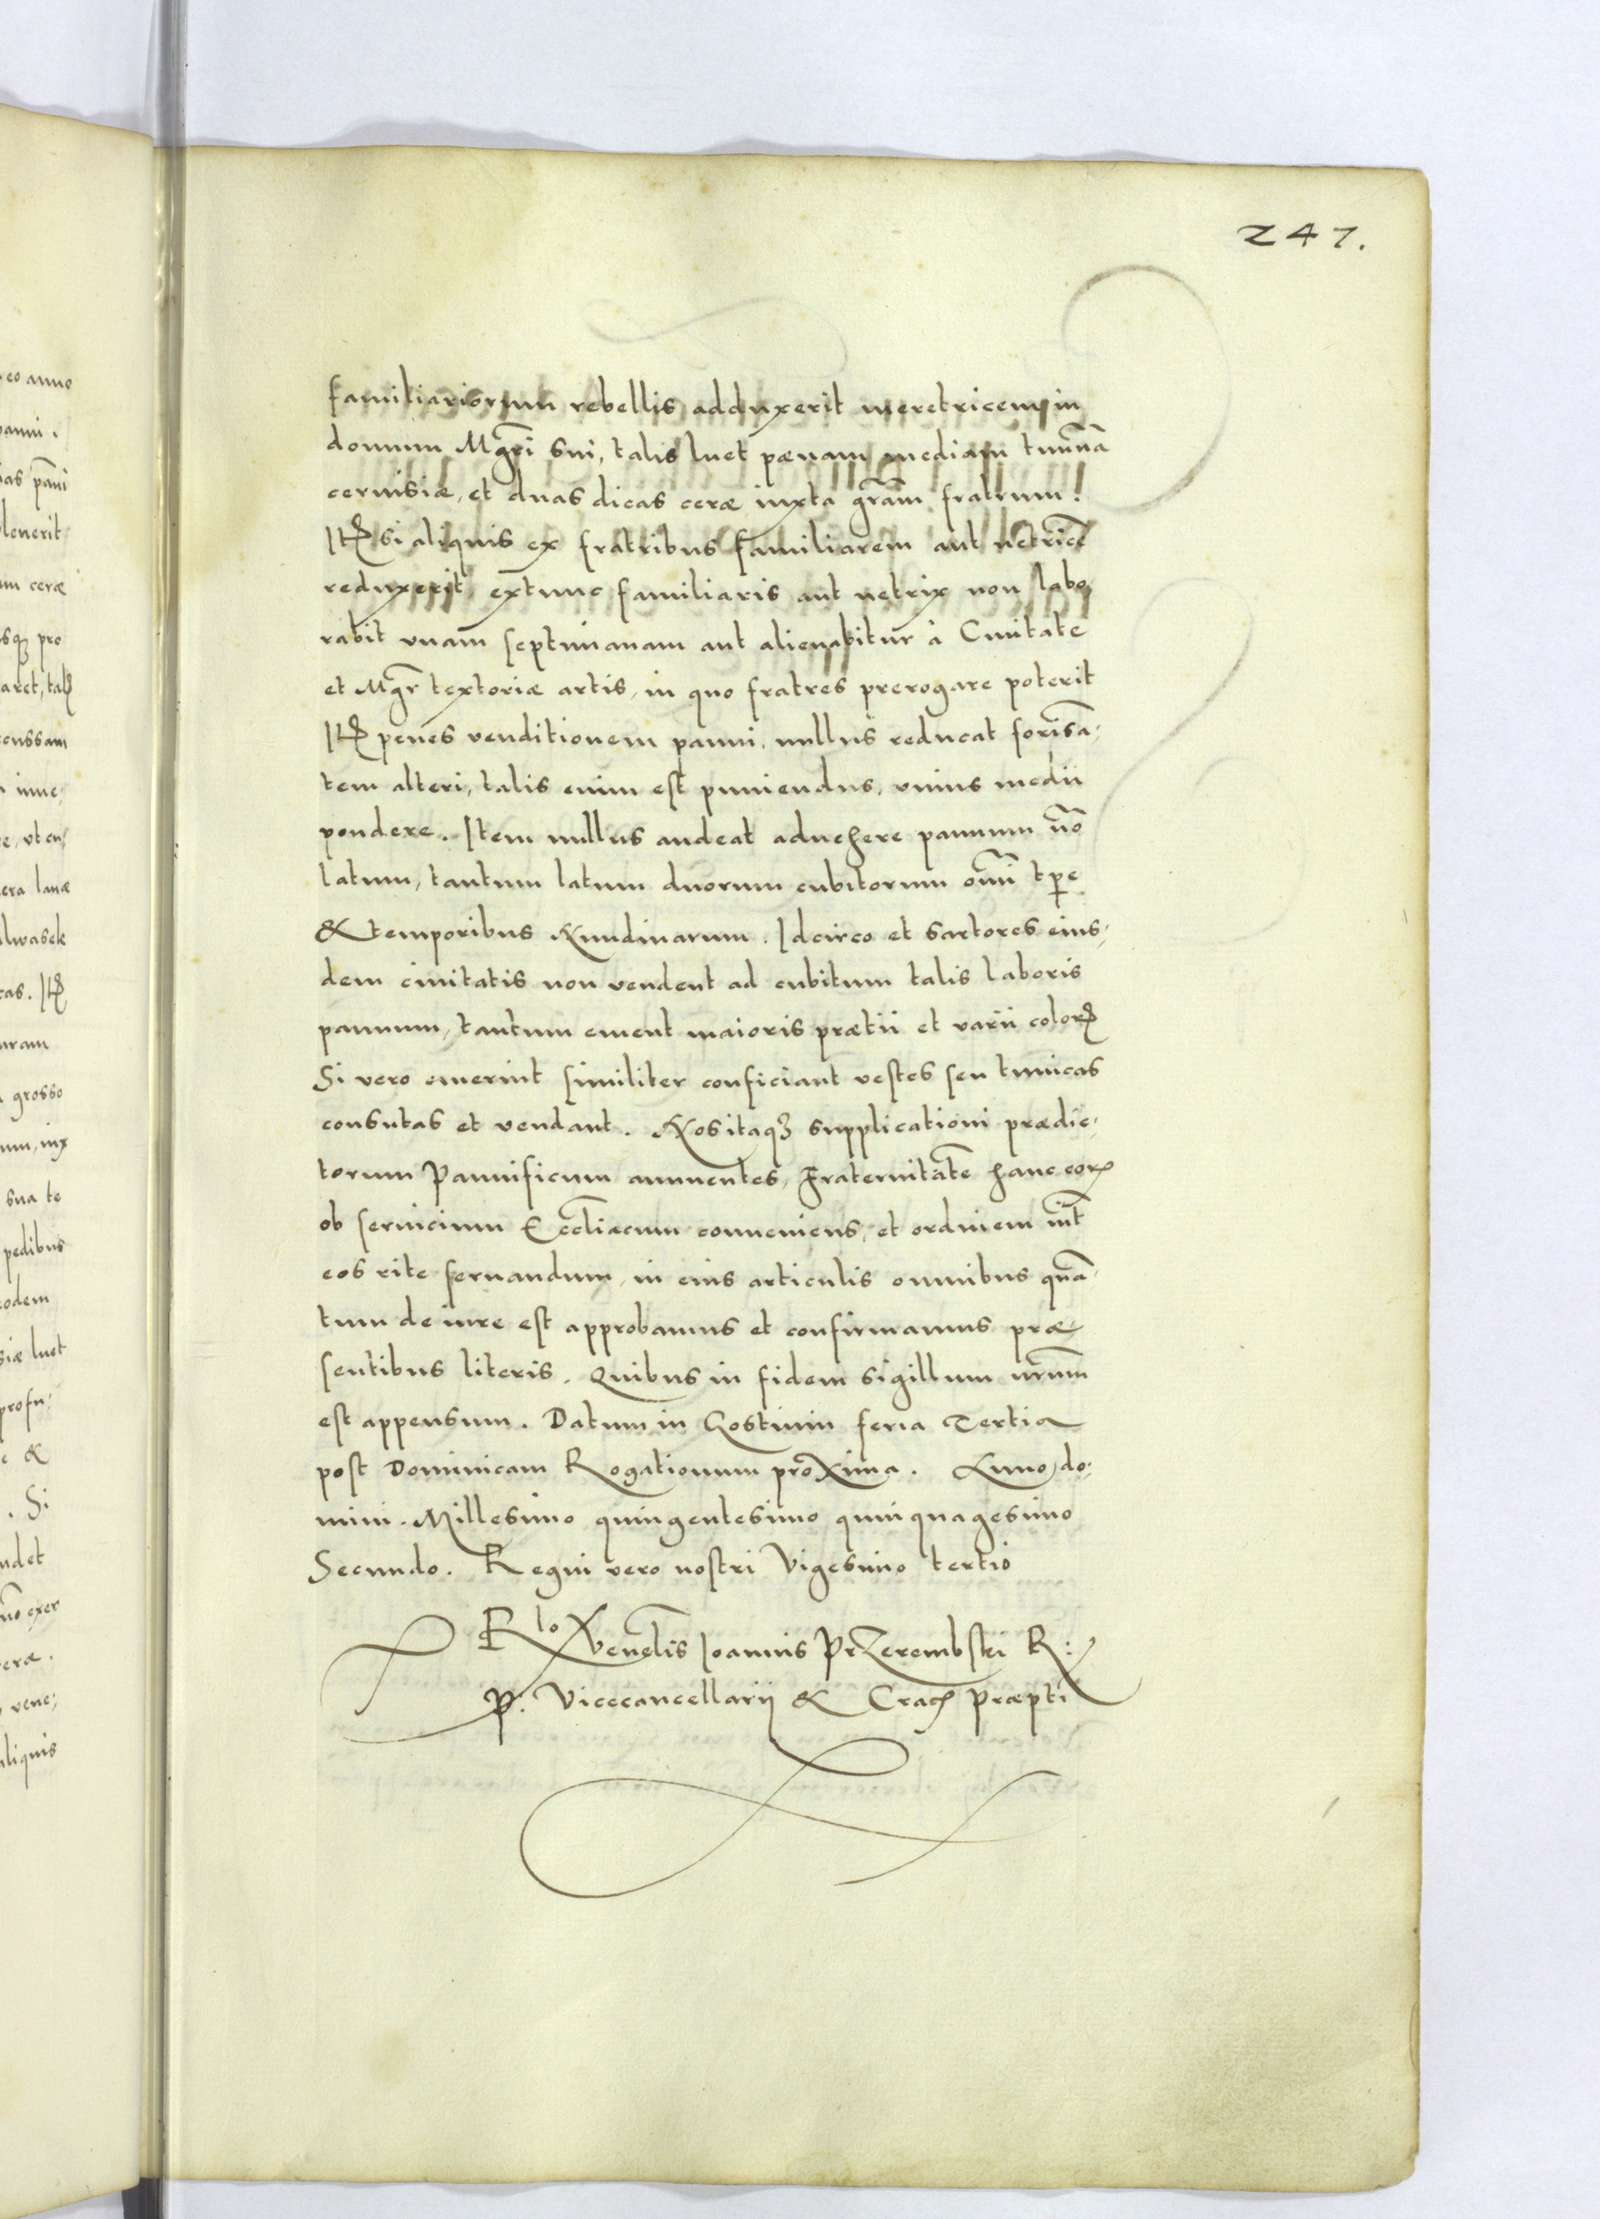 247.
familiariorum rebellis adduxerit meretricem in
domum Mgr̃i sui, talis luet pœnam mediam tunnã
ceruisiæ, et duas dicas ceræ iuxta gr̃am fratrum.
Itꝫ si aliquis ex fratribus familiarem aut netricẽ
reduxerit, extunc familiaris aut netrix non labo,
rabit vnam septimanam aut alienabitur à Ciuitate
et Mgr̃ textoriæ artis, in quo fratres prerogare poterit
Itꝫ penes venditionem panni, nullus reducat forisã,
tem alteri, talis enim est puniendus, vnius medii
pondere. Item nullus audeat aduehere pannum nõ
latum, tantum latum duorum cubitorum omñi tp̃e
& temporibus Nundinarum. Idcirco et sartores eius,
dem ciuitatis non vendent ad cubitum talis laboris
pannum, tantum ement maioris prætii et varii colorꝫ
Si vero emerint similiter conficiant vestes seu tunicas
consutas et vendant. Nos itaqꝫ supplicationi prædic,
torum Pannificum annuentes, Fraternitatẽ hanc eorꝝ
ob seruicium Eccl̃iacum conueniens, et ordinem int̃
eos rite seruandum, in eius articulis omnibus quã,
tum de iure est approbamus et confirmamus præ,
sentibus literis. Quibus in fidem sigillum nr̃um
est appensum. Datum in Gostinin feria Tertia
post Dominicam Rogationum proxima. Anno do,
mini. Millesimo quingentesimo quinquagesimo
Secundo. Regni vero nostri Vigesimo tertio
Rlo Venel̃is Ioannis Przerembski R:
P. Vicecancellarij & Crach præpti
eo anno
panni.
ias pãni
luerit
um ceræ
sqꝫ pro
aret, talꝫ
cussam
n inue,
e, vt en
era lanæ
lwasek
cas. Itꝫ
uram
grosso
um, iux
sua te
pedibus
codem
siæ luet
profu,
e &
. Si
ndet
nõ exer
eræ.
vene,
aliquis